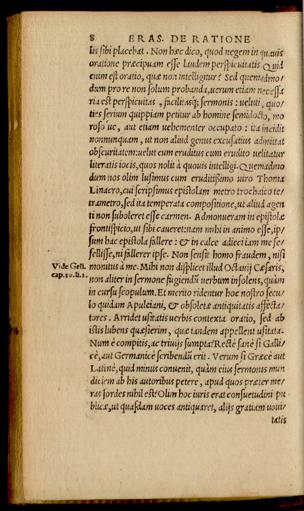 8 ERAS. DE RATIONE
lis sibi placebat. Non hæc dico, quod negem in quauis
oratione præcipuam esse laudem perspicuitatis Quid
enim est oratio, quæ non intelligitur? Sed quemadmo/
dum pro re non solum probanda, uerum etiam necessa
ria est perspicuitas, facilitasq́; sermonis: ueluti, quo/
ties seruum quippiam petitur ab homine semidocto, mo
roso ue, aut etiam uehementer occupato: ita incidit
nonnunquam, ut non aliud genus excusatius admittat
obscuritatem: uelut cum eruditus cum erudito uelitatur
literatis iocis, quos nolit à quouis intelligi. Quemadmo
dum nos olim lusimus cum eruditissimo uiro Thoma
Linacro, cui scripsimus epistolam metro trochaico te/
trametro, sed ita temperata compositione, ut aliud agen
ti non suboleret esse carmen. Admonueram in epistolæ
frontispicio, ut sibi caueret: nam mihi in animo esse, ip/
sum hac epistola fallere: & in calce adieci iam me se/
fellisse, ni fallerer ipse. Non sensit homo fraudem, nisi
Vide Gell.
cap. 10. li. 1.
monitus à me. Mihi non displicet illud Octauij Cæsaris,
non aliter in sermone fugiendū uerbum insolens, quàm
in cursu scopulum. Et merito ridentur hoc nostro secu/
lo quidam Apuleiani, & obsoletæ antiquitatis affecta/
tores. Arridet usitatis uerbis contexta oratio, sed ab
istis lubens quæsierim, quæ tandem appellent usitata.
Num è compitis, ac triuijs sumpta? Rectè sanè si Galli/
cè, aut Germanicè scribendū erit. Verum si Græcè aut
Latinè, quid minus conuenit, quàm eius sermonis mun
diciem ab his autoribus petere, apud quos præter me/
ras sordes nihil est? Olim hoc iuris erat consuetudini pu
blicæ, ut quasdam uoces antiquaret, alijs gratiam noui/
tatis